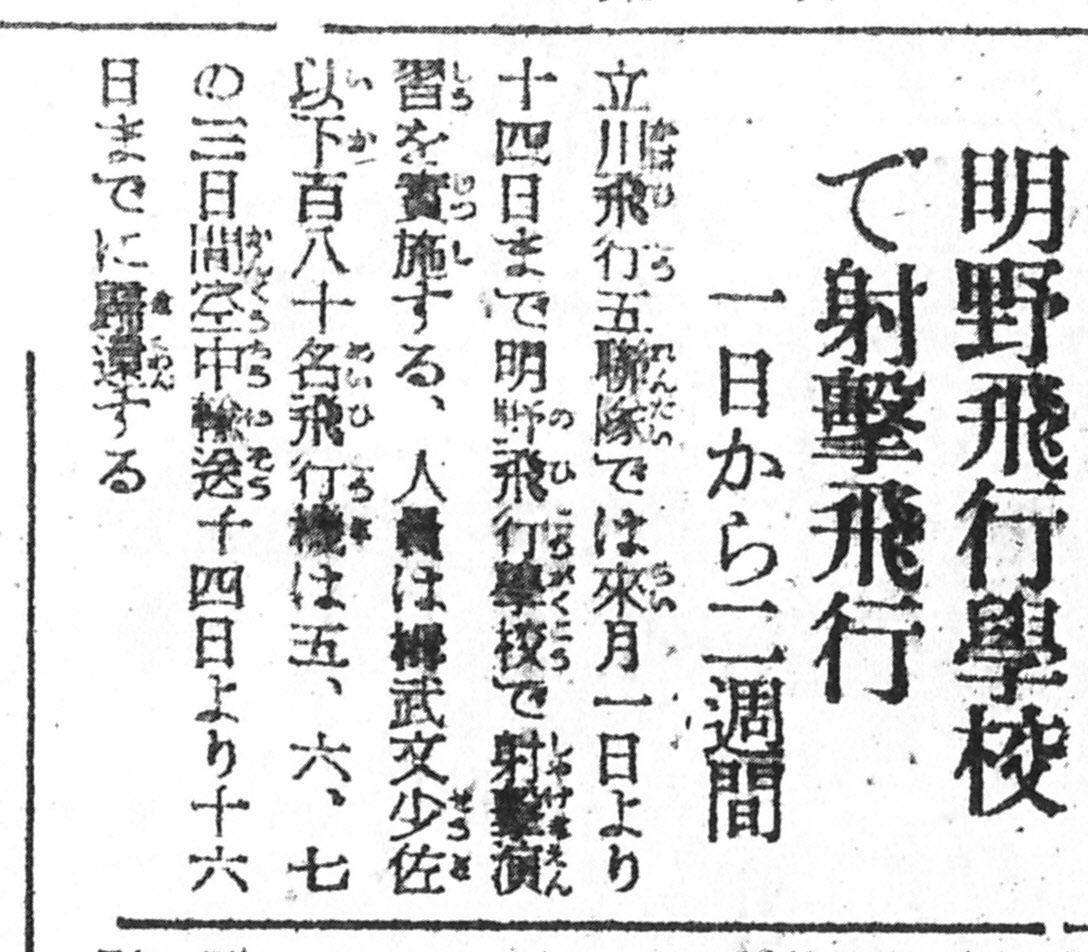 明野飛行學校
で射擊飛行
一日から二週間
立川飛行五聯隊では來月一日より
十四日まで明野飛行學校で射擊演
習を實施する、人員は柳武文少佐
以下百八十名飛行機は五、六、七
の三日間空中輸送十四日より十六
日までに歸還する